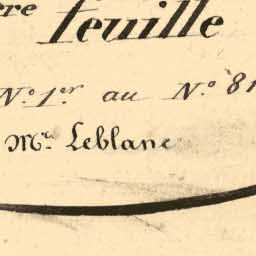 ère feuille
N.º 1.er au N.º 81
M.e Leblanc